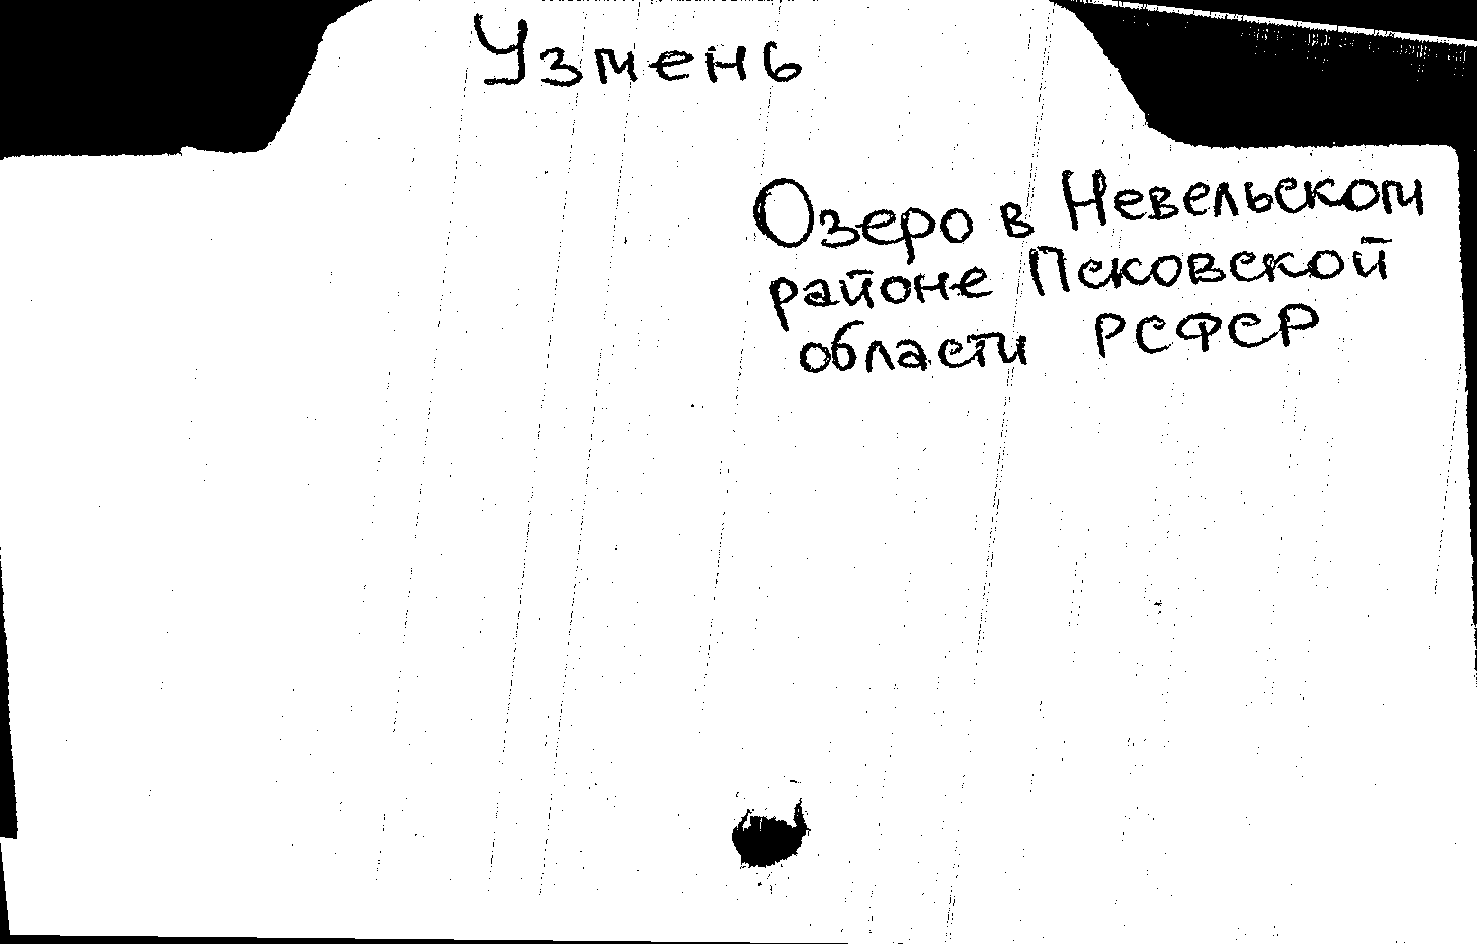 Узмень
Озеро в Невельском
районе Псковской
области РСФСР